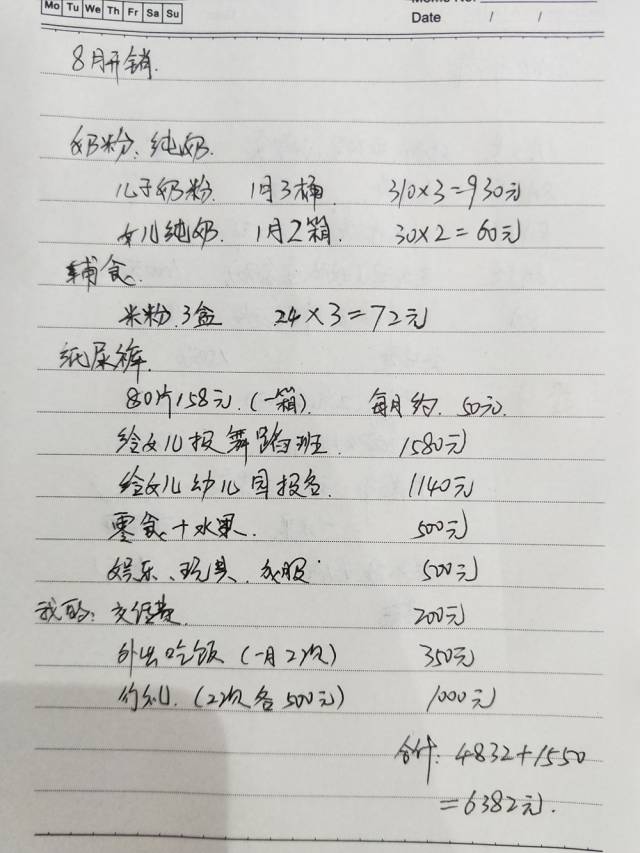 Mo Tu We Th Fr Sa Su
Memo No.
Date / /
8月开销.
奶粉、纯奶.
儿子奶粉. 1月3桶 310×3=930元
女儿纯奶. 1月2箱. 30×2=60元
辅食.
米粉.3盒 24×3=72元
纸尿裤.
80片158元.(一箱). 每月约.50元.
给女儿报舞蹈班. 1580元
给女儿幼儿园报名. 1140元
零食+水果. 500元
娱乐、玩具、衣服. 500元
我的: 交话费 200元
外出吃饭 (一月2次) 350元
(2次各500元) 1000元
合计: 4832+1550
=6382元.